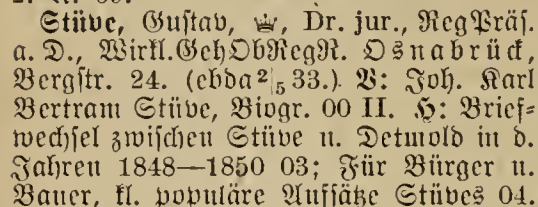 Stüve, Gustav, Dr. jur., RegPräs.
a. D., Wirkl.GehObRegR. Osnabrück,
Bergstr. 24. (ebda 2/5 33.) V: Joh. Karl
Bertram Stüve, Biogr. 00 II. H: Brief=
wechsel zwischen Stüve u. Detmold in d.
Jahren 1848—1850 03; Für Bürger u.
Bauer, kl. populäre Aufsätze Stüves 04.